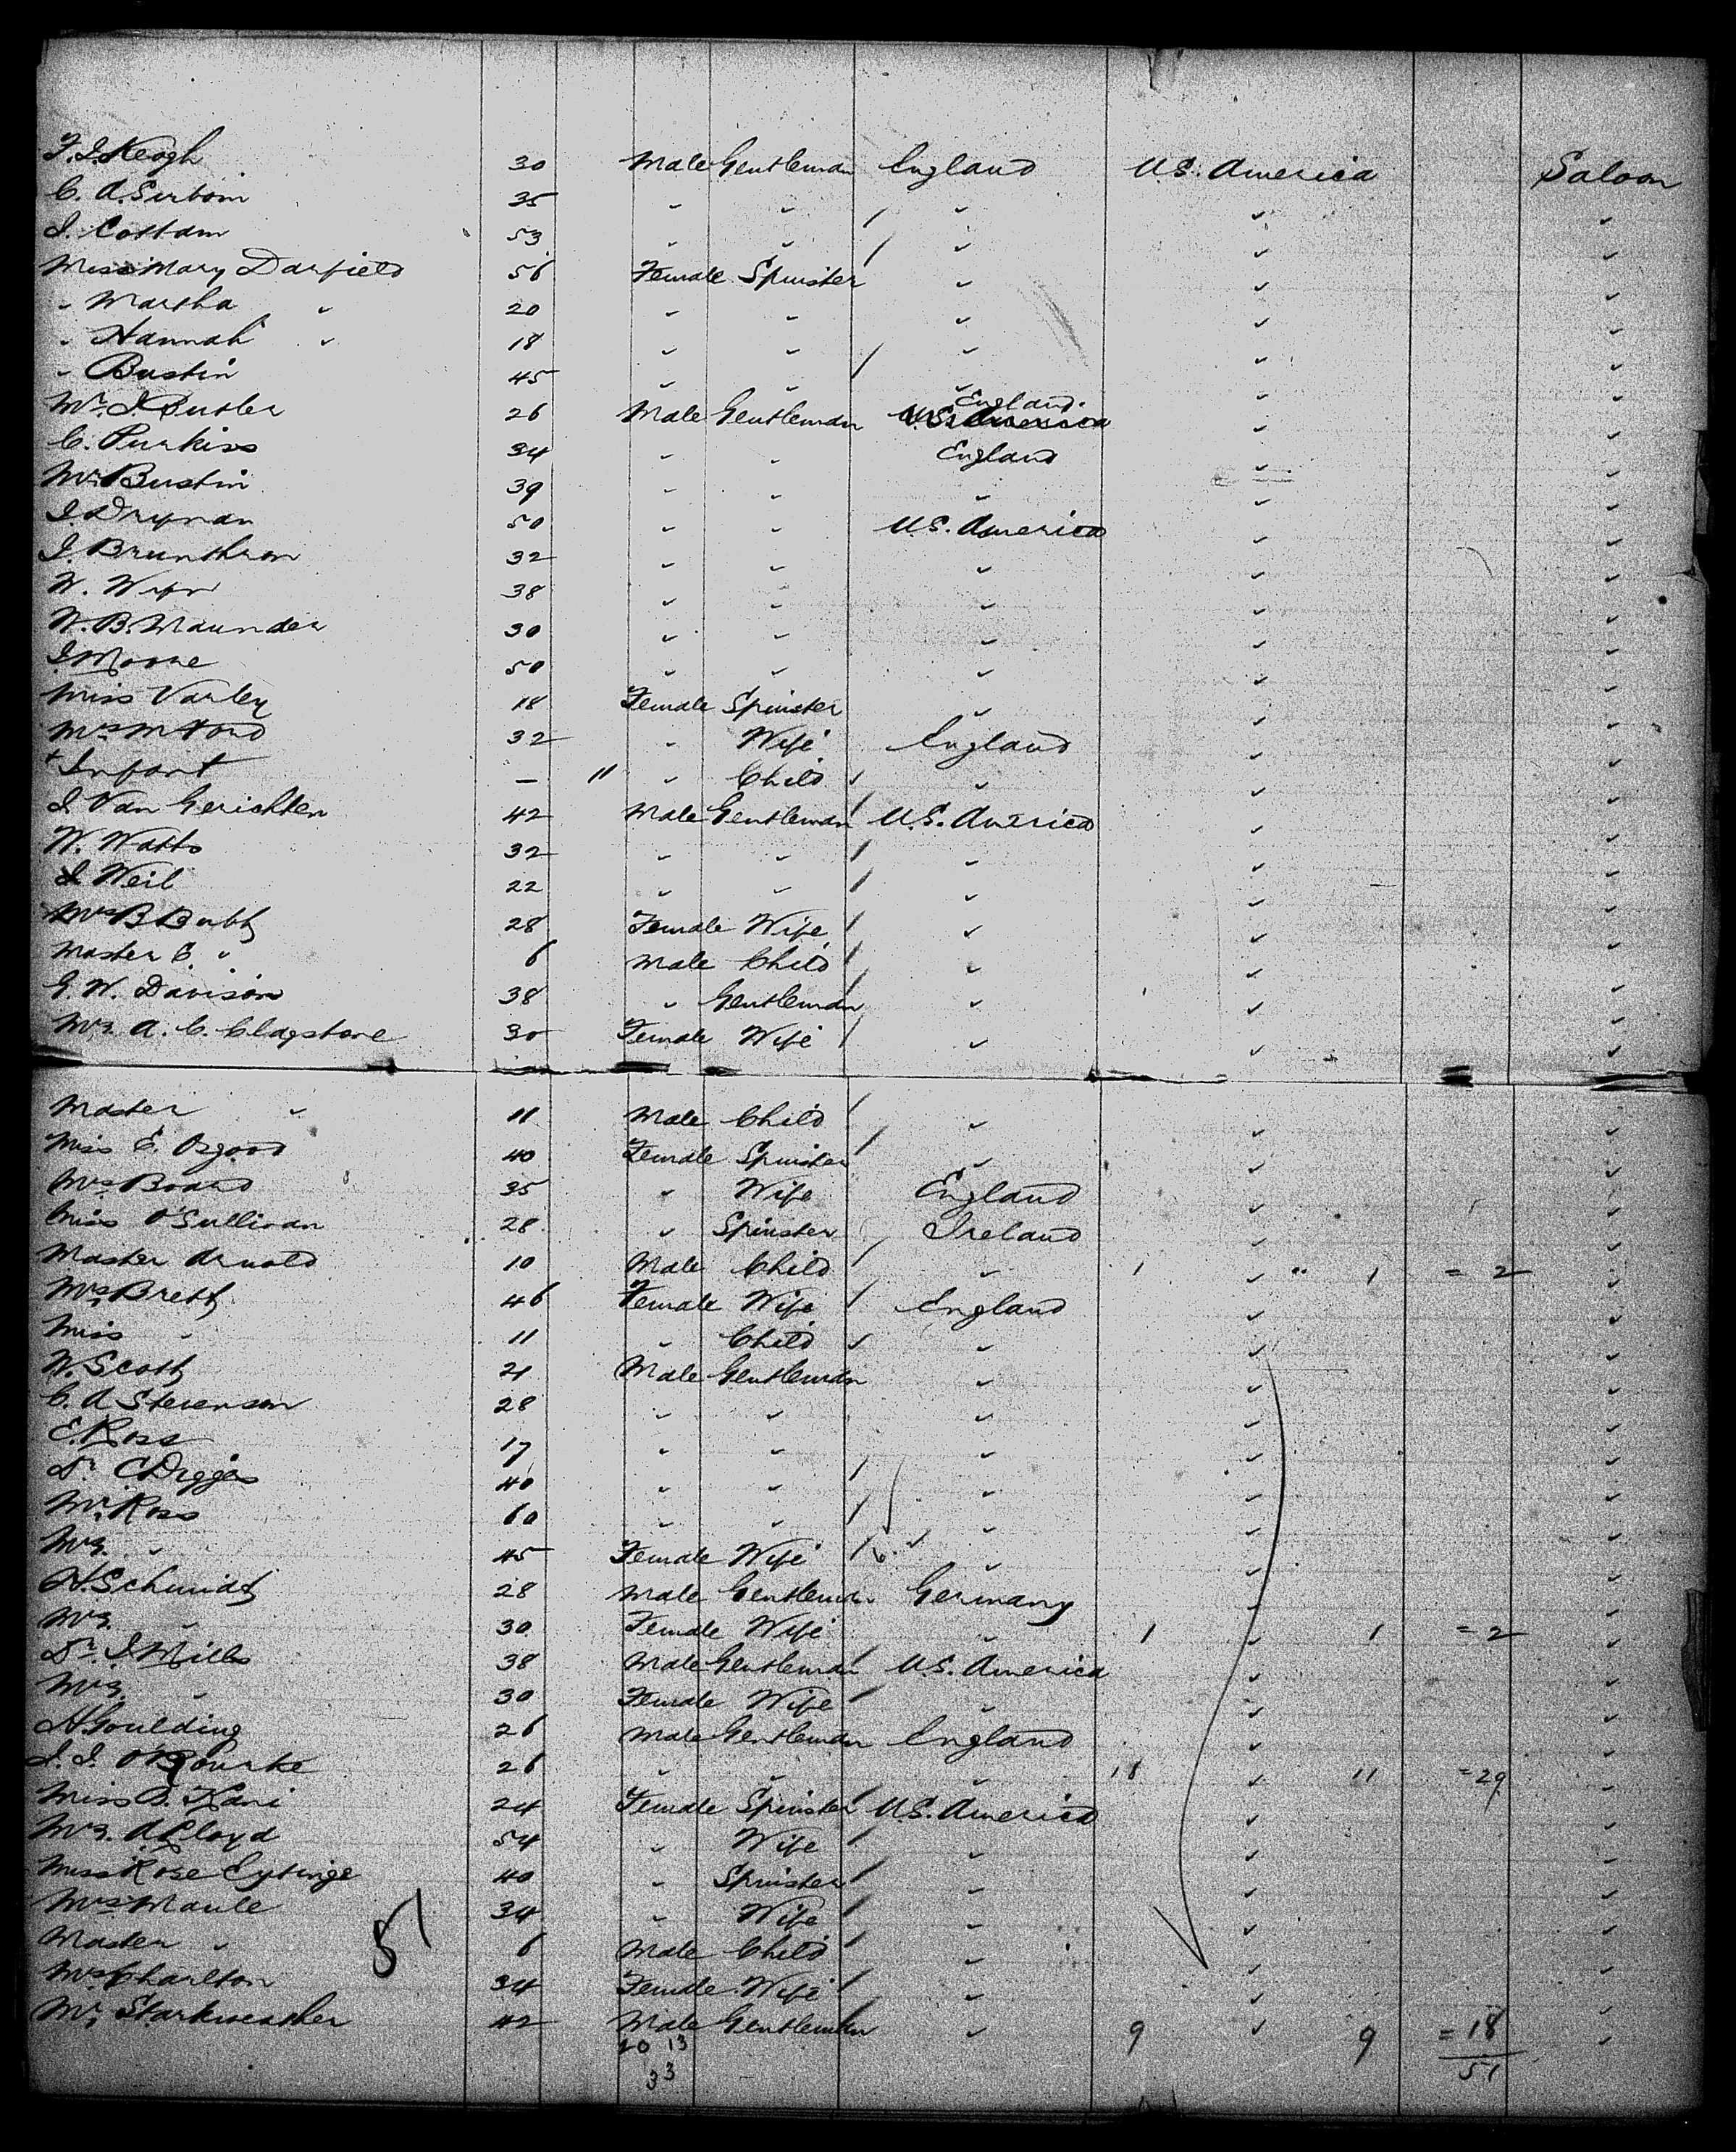 F. J. Keogh 30 Male Gentleman England U.S. America Saloon
C. A. Serbom 35 " " " " "
J. Cottam 53 " " " " "
Miss Mary Darfield 56 Female Spinster " " "
" Martha " 20 " " " " "
" Hannah " 18 " " " " "
" Bustin 45 " " " " "
England.
Mr. J. Butler 26 Male Gentleman U.S. America " "
C. Purkiss 34 " " England " "
Mr. Bustin 39 " " " " "
J. Drynan 50 " " U.S. America " "
J. Brunthrom 32 " " " " "
W. 38 " " " " "
W. B. Maunder 30 " " " " "
J. Moore 50 " " " " "
Miss Varley 18 Female Spinster " " "
Mrs M Ford 32 " Wife England " "
+ Infant — 11 " Child " " "
J. Van Gerichten 42 Male Gentleman U.S. America " "
W. Watts 32 " " " " "
J. Weil 22 " " " " "
Mrs B Bubb 28 Female Wife " " "
Master E. " 6 Male Child " " "
G. W. Davison 38 " Gentleman " " "
Mrs. A. C. Clagstone 30 Female Wife " " "
Master " 11 Male Child " " "
Miss E. Osgood 40 Female Spinster " " "
Mrs Board 35 " Wife England " "
Miss O'Sullivan 28 " Spinster Ireland " "
Master Arnold 10 Male Child " 1 " 1 = 2 "
Mrs. Brett 46 Female Wife England " "
Miss " 11 " Child " " "
W. Scott 21 Male Gentleman " " "
C. A Stevenson 28 " " " " "
E. Ross 17 " " " " "
Dr. C Digges 40 " " " " "
Mr. Ross 60 " " " " "
Mrs. " 45 Female Wife " " "
H. Schmidt 28 Male Gentleman Germany " "
Mrs. " 30 Female Wife " 1 " 1 = 2 "
Dr. J. Mills 38 Male Gentleman U.S. America " "
Mrs. " 30 Female Wife " " "
H. Goulding 26 Male Gentleman England " "
J. J. O'Rourke 26 " " " 18 " 11 = 29 "
Miss B. Kani 24 Female Spinster U.S. America " "
Mrs. A Lloyd 54 " Wife " " "
Miss Rose Eytinge 40 " Spinster " " "
Mrs Maule 34 " Wife " " "
Master " 6 Male Child " " "
Mrs Charlton 34 Female Wife " " "
Mr. Starkweather 42 Male Gentleman " 9 " 9 = 18 "
20 13 51
33